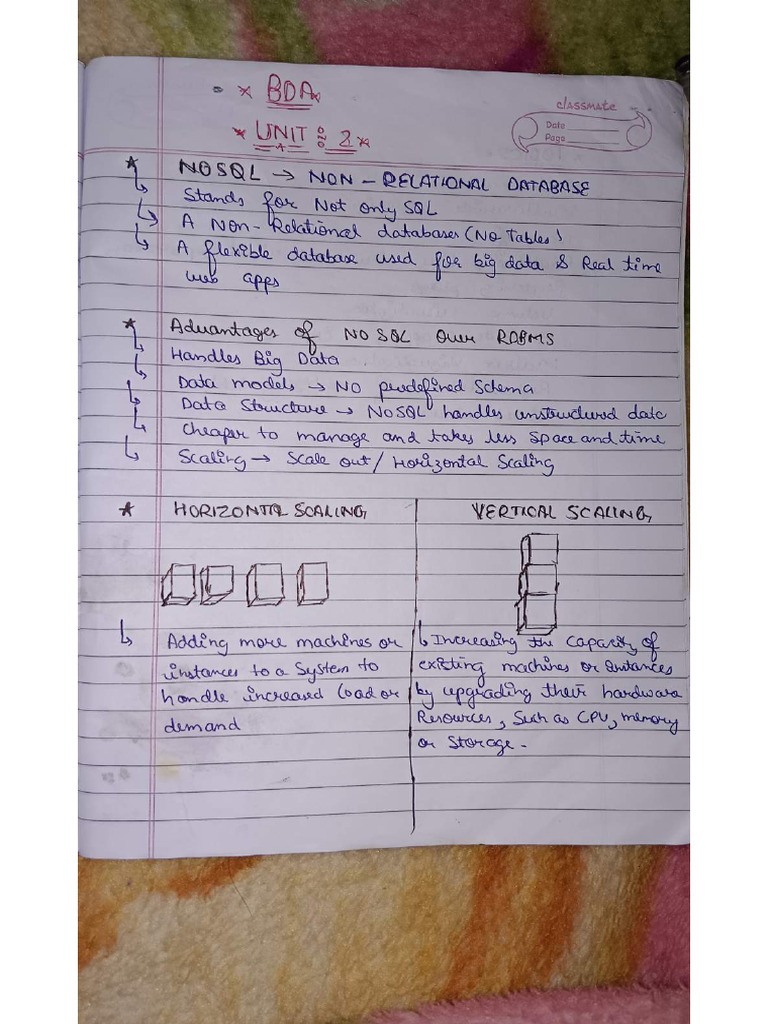 BDA
classmate
Date
Page
UNIT : 2
NOSQL → NON - RELATIONAL DATABASE
Stands for Not only SQL
A Non-Relational databases (No Tables)
A flexible database used for big data & Real time
web apps
Advantages of NO SQL Over RDBMS
Handles Big Data
Data models → NO predefined Schema
Data Structure → NoSQL handles unstructured data
Cheaper to manage and takes less Space and time
Scaling → Scale out / Horizontal Scaling
HORIZONTAL SCALING
Adding more machines or
instances to a System to
handle increased load or
demand
VERTICAL SCALING
Increasing the capacity of
existing machines or instances
by upgrading their hardware
Resources, Such as CPU, memory
or Storage.